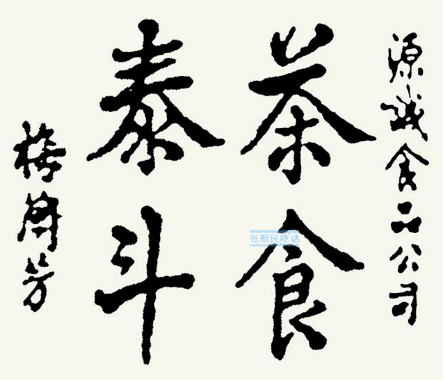 源诚食品公司
茶食
泰斗
梅兰芳
张新民吃话